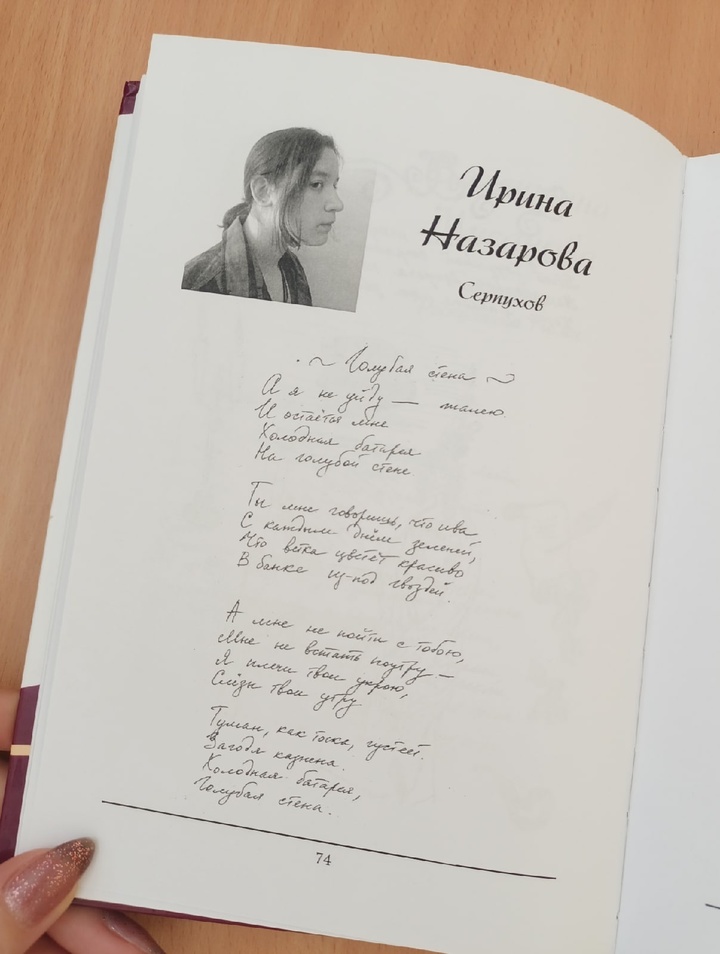 Ирина
Назарова
Серпухов
~ Голубая стена ~
А я не уйду — жалею.
И остаётся мне
Холодная батарея
На голубой стене
Ты мне говоришь, что ива
С каждым днём зеленей,
Что ветка цветёт красиво
В банке из-под гвоздей.
А мне не пойти с тобою,
Мне не встать поутру —
Я плечи твои укрою,
Слёзы твои утру
Туман, как тоска, густеет.
казнена.
Холодная батарея,
Голубая стена.
74